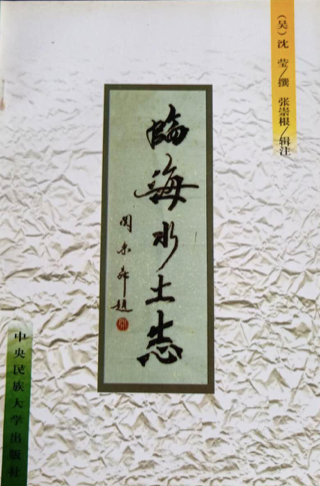 （吴）沈莹／撰 张崇根／辑注
临海水土志
周东舜题
中央民族大学出版社